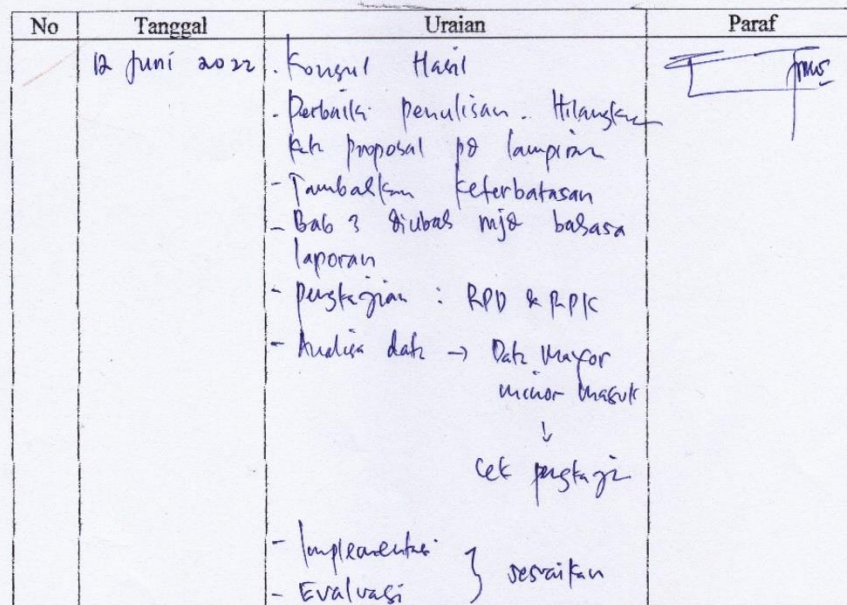 No Tanggal Uraian Paraf
12 Juni 2022 . Konsul Hasil
. Perbaiki penulisan. Hilangkan
kth proposal pd lampiran
- Tambahkan keterbatasan
- Bab 3 diubah mjd bahasa
laporan
- Pengkajian : RPD & RPK
- Analisa data → Data Mayor
minor masuk
↓
Cek pengkajian
- Implementasi
- Evaluasi } sesuaikan